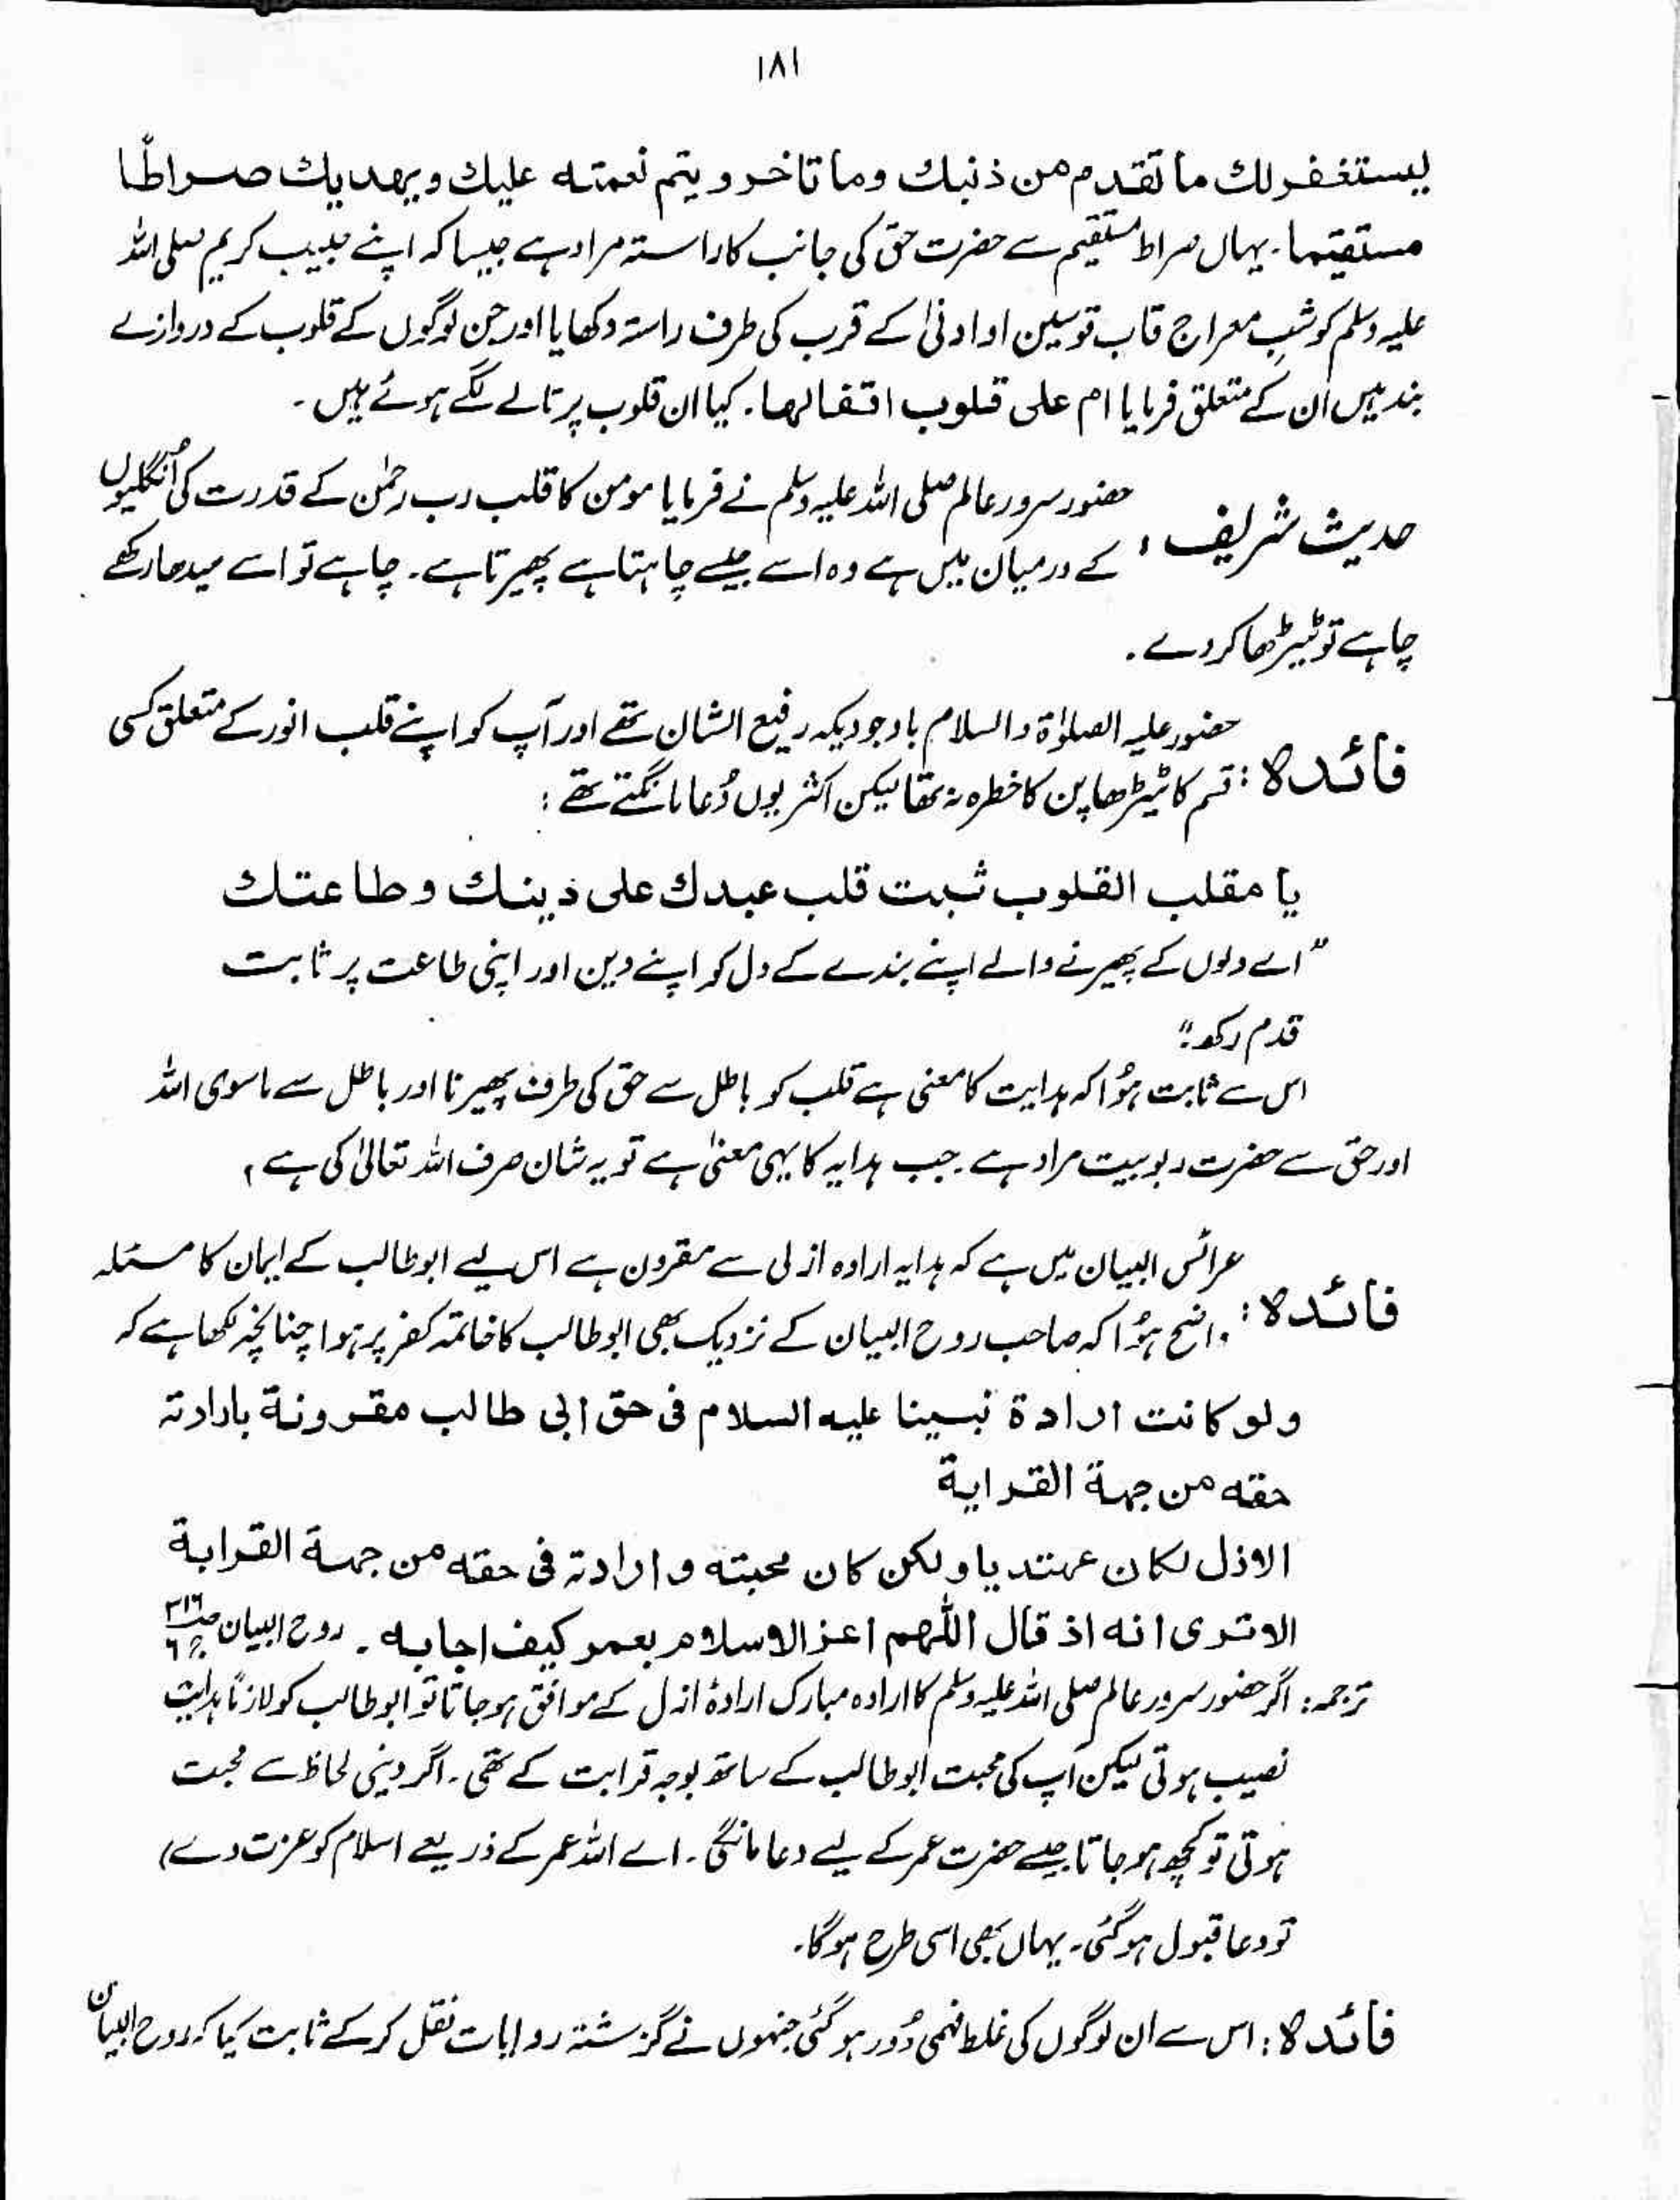 ۱۸۱
ليستغفر لك ما تقدم من ذنبك وما تاخر و يتم نعمته عليك و يهديك صراطًا
مستقیما۔ یہاں صراط مستقیم سے حضرت حق کی جانب کا راستہ مراد ہے جیسا کہ اپنے حبیب کریم صلی اللہ
علیہ وسلم کو شبِ معراج قاب قوسین او ادنیٰ کے قرب کی طرف راستہ دکھایا اور جن لوگوں کے قلوب کے دروازے
بند ہیں اُن کے متعلق فرمایا ام على قلوب اقفالها۔ کیا ان قلوب پر تالے لگے ہوئے ہیں ۔
حدیث شریف : حضور سرور عالم صلی اللہ علیہ وسلم نے فرمایا مومن کا قلب رب رحمٰن کے قدرت کی اُنگلیوں
کے درمیان میں ہے وہ اسے جیسے چاہتا ہے پھیرتا ہے۔ چاہے تو اسے سیدھا رکھے
چاہے تو ٹیڑھا کردے ۔
فائدہ : حضور علیہ الصلوٰۃ والسلام باوجودیکہ رفیع الشان تھے اور آپ کو اپنے قلب انور کے متعلق کسی
قسم کا ٹیڑھا پن کا خطرہ نہ تھا لیکن اکثر یوں دُعا مانگتے تھے :
يا مقلب القلوب ثبت قلب عبدك على دينك و طاعتك
"اے دلوں کے پھیرنے والے اپنے بندے کے دل کو اپنے دین اور اپنی طاعت پر ثابت
قدم رکھ"۔
اس سے ثابت ہُوا کہ ہدایت کا معنی ہے قلب کو باطل سے حق کی طرف پھیرنا اور باطل سے ماسوی اللہ
اور حق سے حضرت ربوبیت مراد ہے۔ جب ہدایہ کا یہی معنیٰ ہے تو یہ شان صرف اللہ تعالیٰ کی ہے ،
فائدہ : عرائس البیان میں ہے کہ ہدایہ ارادہ ازلی سے مقرون ہے اس لیے ابوطالب کے ایمان کا مسئلہ
واضح ہُوا کہ صاحب روح البیان کے نزدیک بھی ابوطالب کا خاتمہ کفر پر ہوا چنانچہ لکھا ہے کہ
ولو كانت ارادة نبينا عليه السلام فى حق ابى طالب مقرونة بارادته
حقه من جهة القراية
الازل لكان مهتديا ولكن كان محبته و ارادته فى حقه من جهة القرابة
الا ترى انه اذ قال اللّٰهم اعز الاسلام بعمر كيف اجابه ۔ روح البیان ص۴۱۶ ج۶
ترجمہ: اگر حضور سرور عالم صلی اللہ علیہ وسلم کا ارادہ مبارک ارادۂ ازل کے موافق ہوجاتا تو ابوطالب کو لازمًا ہدایت
نصیب ہوتی لیکن آپ کی محبت ابوطالب کے ساتھ بوجہ قرابت کے تھی۔ اگر دینی لحاظ سے محبت
ہوتی تو کچھ ہو جاتا جیسے حضرت عمر کے لیے دعا مانگی ۔ اے اللہ عمر کے ذریعے اسلام کو عزت دے)
تو دعا قبول ہوگئی۔ یہاں بھی اسی طرح ہوگا۔
فائدہ : اس سے ان لوگوں کی غلط فہمی دُور ہوگئی جنہوں نے گزشتہ روایات نقل کرکے ثابت کیا کہ روح البیان